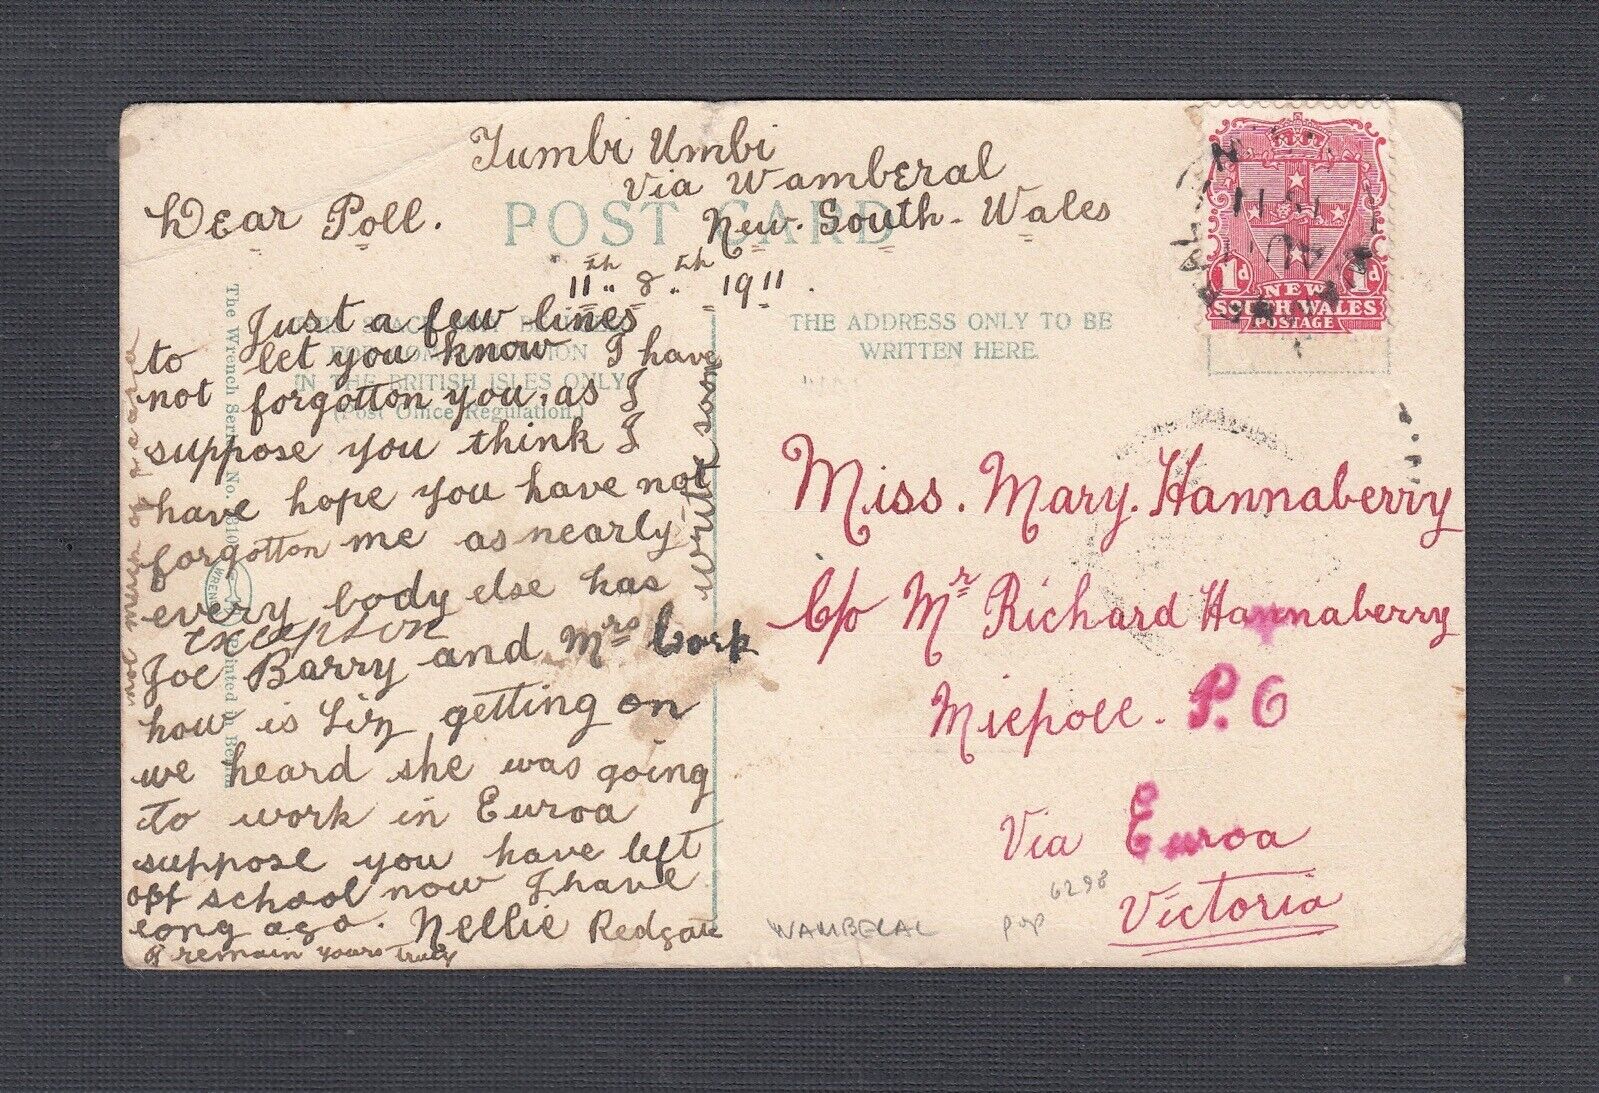 Tumbi Umbi
Via Wamberal
New. South - Wales
Dear Poll.
11th 8th 1911.
POST CARD
Just a few lines
to let you know I have
not forgotton you, as I
suppose you think I
have hope you have not
forgotton me as nearly
every body else has
exception
Joe Barry and Mrs Cork
how is Liz getting on
we heard she was going
to work in Euroa
suppose you have left
off school now I have
long ago. Nellie Redgate
I remain yours truly
write soon
FOR
IN THE BRITISH ISLES ONLY
(Post Office Regulation.)
The Wrench Series No.
Printed in
THE ADDRESS ONLY TO BE
WRITTEN HERE.
1d 1d
NEW
SOUTH WALES
POSTAGE
Miss. Mary. Hannaberry
C/o Mr Richard Hannaberry
Miepoll. P.O
Via Euroa
Victoria
6298
WAMBERAL pop